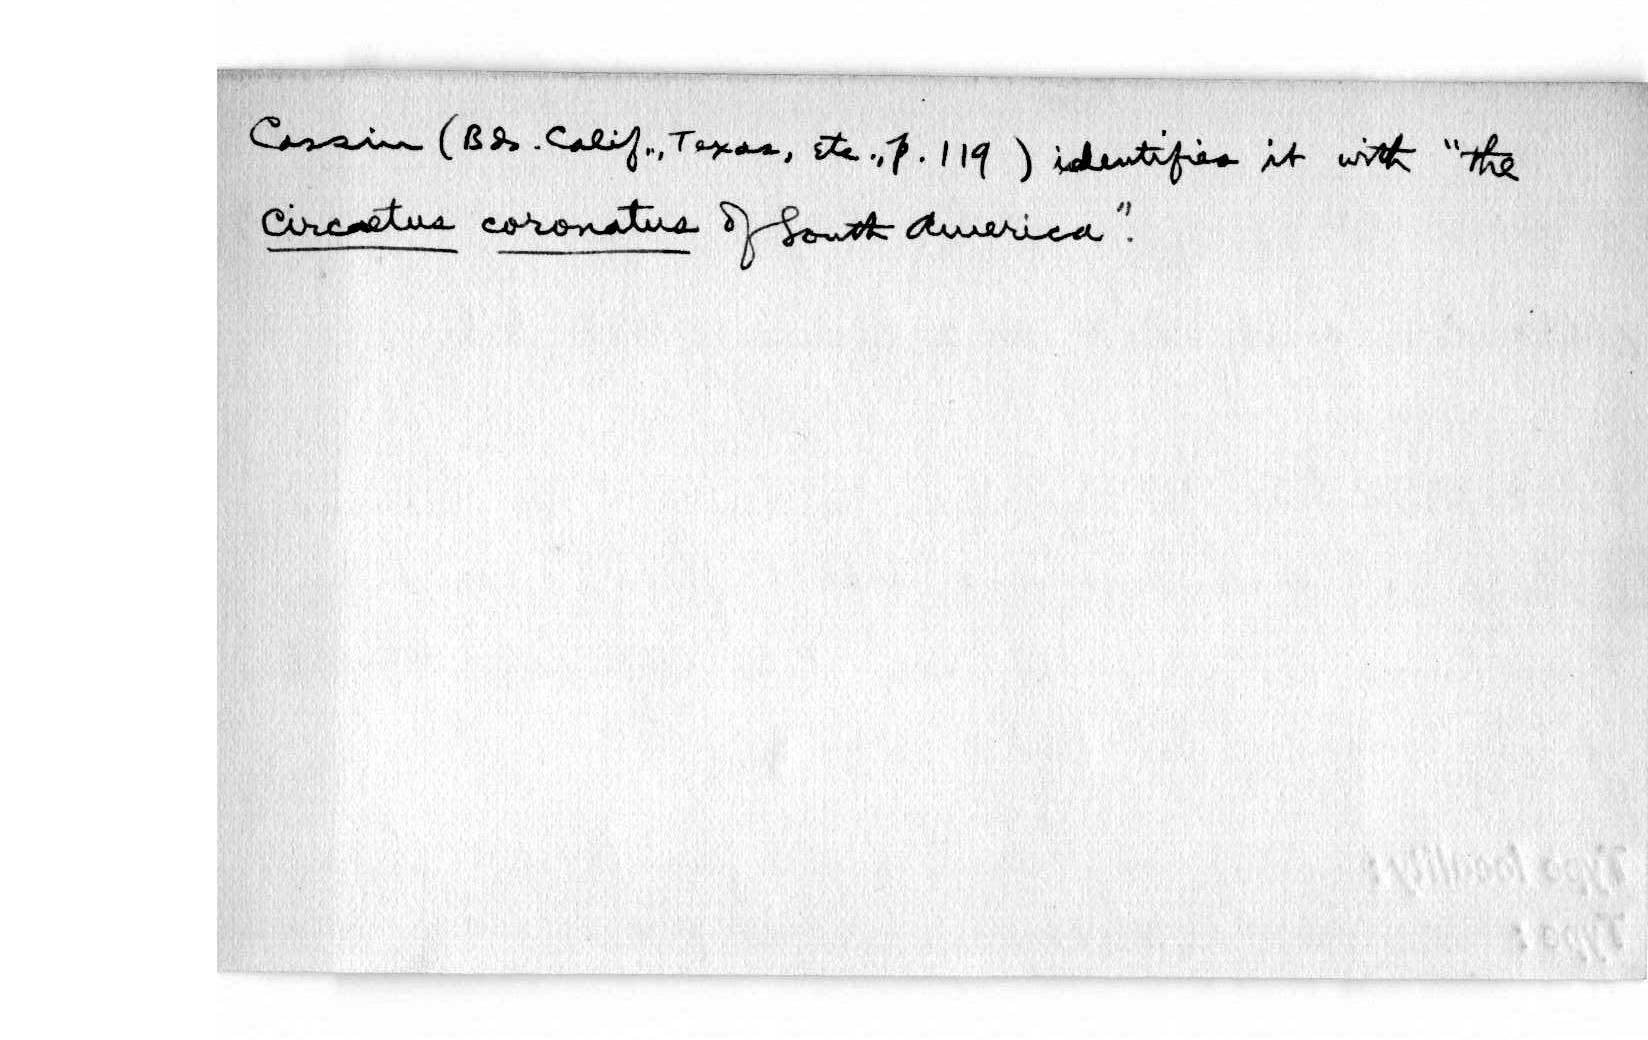 Cassin (Bds. Calif., Texas, etc., p. 119) identifies it with "the
Circaetus coronatus of South America".
Type locality:
Type: